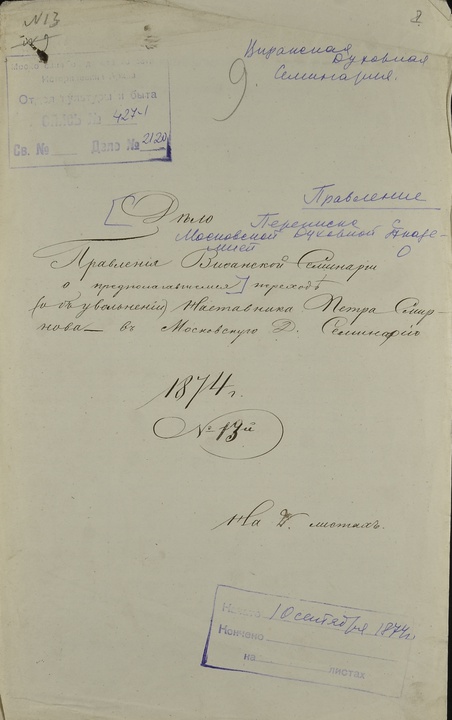 N13
9.
Вифанская
Духовная
Семинария.
Отдел культуры и быта
ОПИСЬ № 427-1
Св. № Дело № 2120
Правление
Дѣло
Переписка
Московской Духовной Акаде-
мией
Правленія Виѳанской Семинаріи
о предполагавшемся переходѣ
(объ увольненіи) Наставника Петра Смир-
нова въ Московскую Д. Семинарію
1874 г.
№ 13й
На листахъ.
Начато 10 сентября 1874 г.
Кончено
на листах